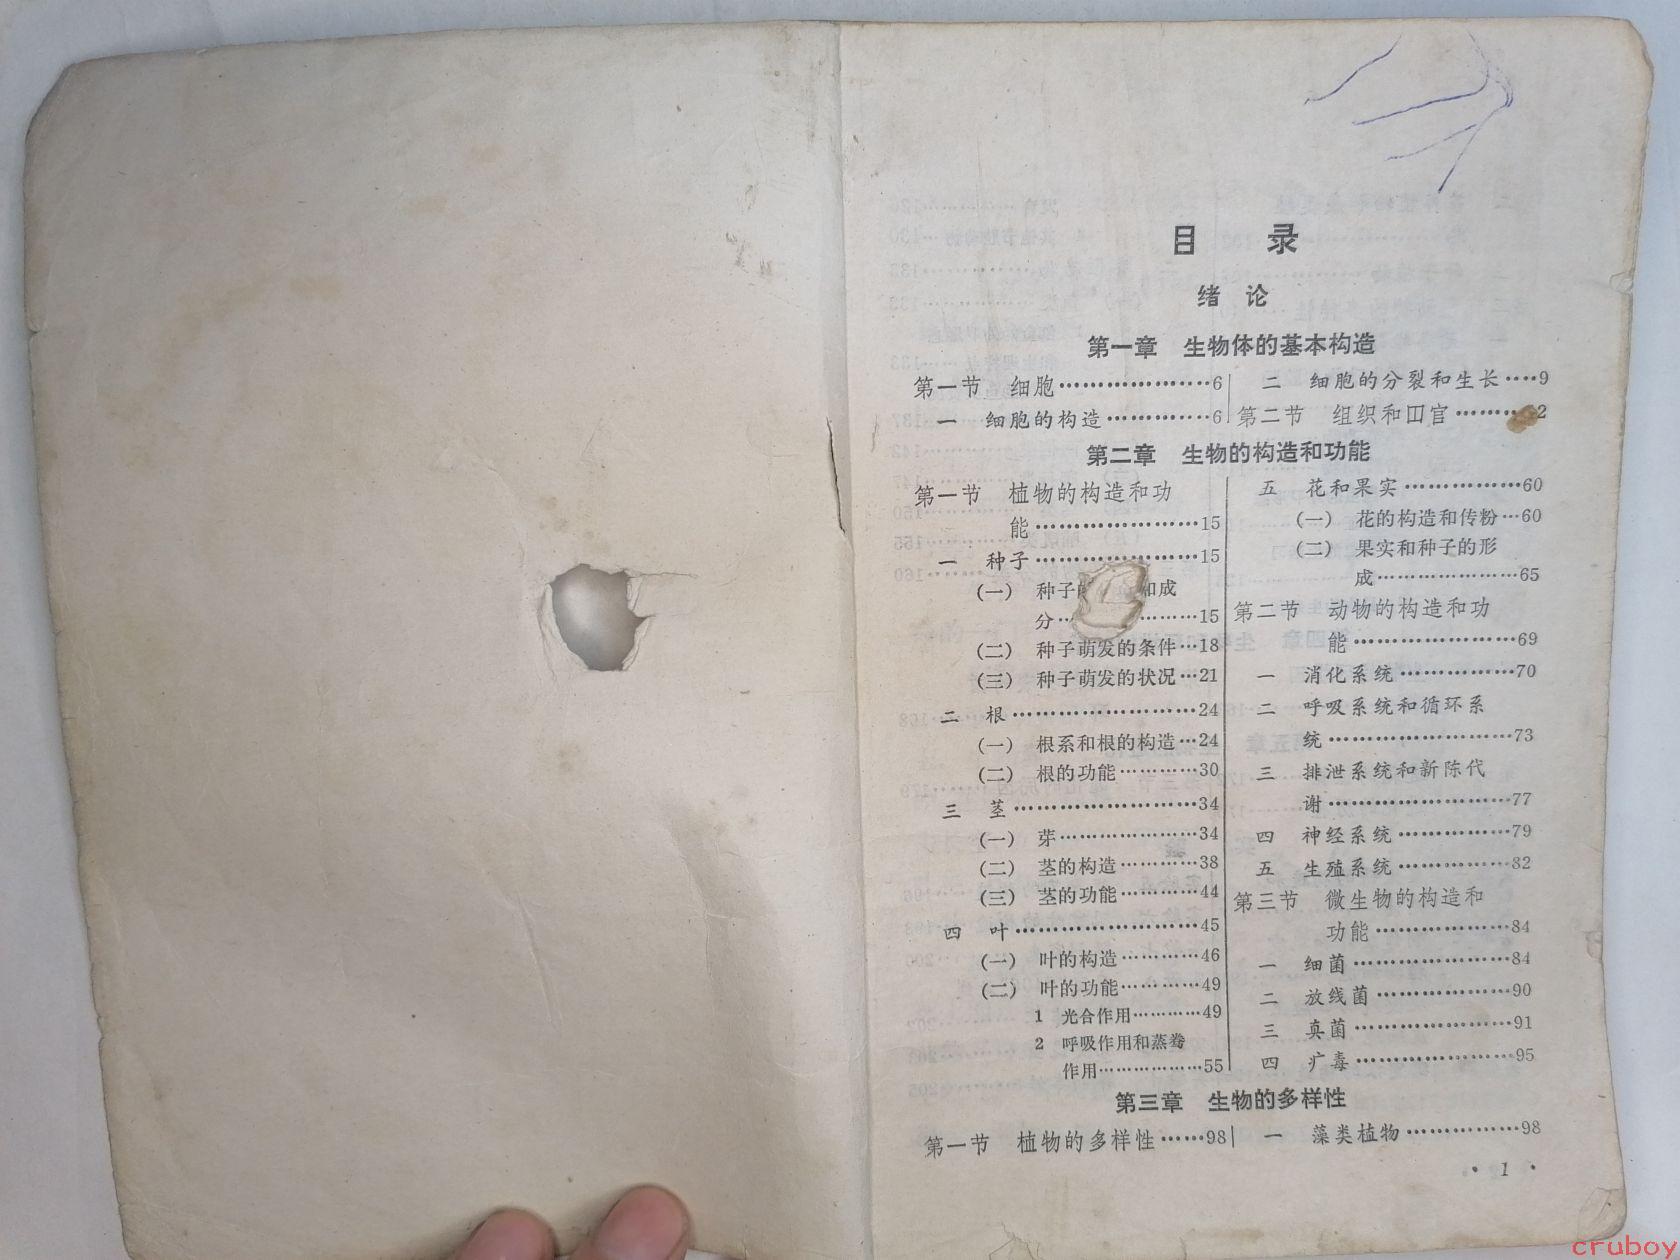 目 录
绪 论
第一章 生物体的基本构造
第一节 细胞…………………6
一 细胞的构造……………6
二 细胞的分裂和生长……9
第二节 组织和吅官………2
第二章 生物的构造和功能
第一节 植物的构造和功
能…………………15
一 种子…………………15
(一) 种子的 和成
分…………………15
(二) 种子萌发的条件…18
(三) 种子萌发的状况…21
二 根……………………24
(一) 根系和根的构造…24
(二) 根的功能…………30
三 茎……………………34
(一) 芽…………………34
(二) 茎的构造…………38
(三) 茎的功能…………44
四 叶……………………45
(一) 叶的构造…………46
(二) 叶的功能…………49
1 光合作用…………49
2 呼吸作用和蒸
作用………………55
五 花和果实……………60
(一) 花的构造和传粉…60
(二) 果实和种子的形
成…………………65
第二节 动物的构造和功
能…………………69
一 消化系统……………70
二 呼吸系统和循环系
统……………………73
三 排泄系统和新陈代
谢……………………77
四 神经系统……………79
五 生殖系统……………82
第三节 微生物的构造和
功能………………84
一 细菌…………………84
二 放线菌………………90
三 真菌…………………91
四 疒毒…………………95
第三章 生物的多样性
第一节 植物的多样性……98
一 藻类植物……………98
· 1 ·
cruboy